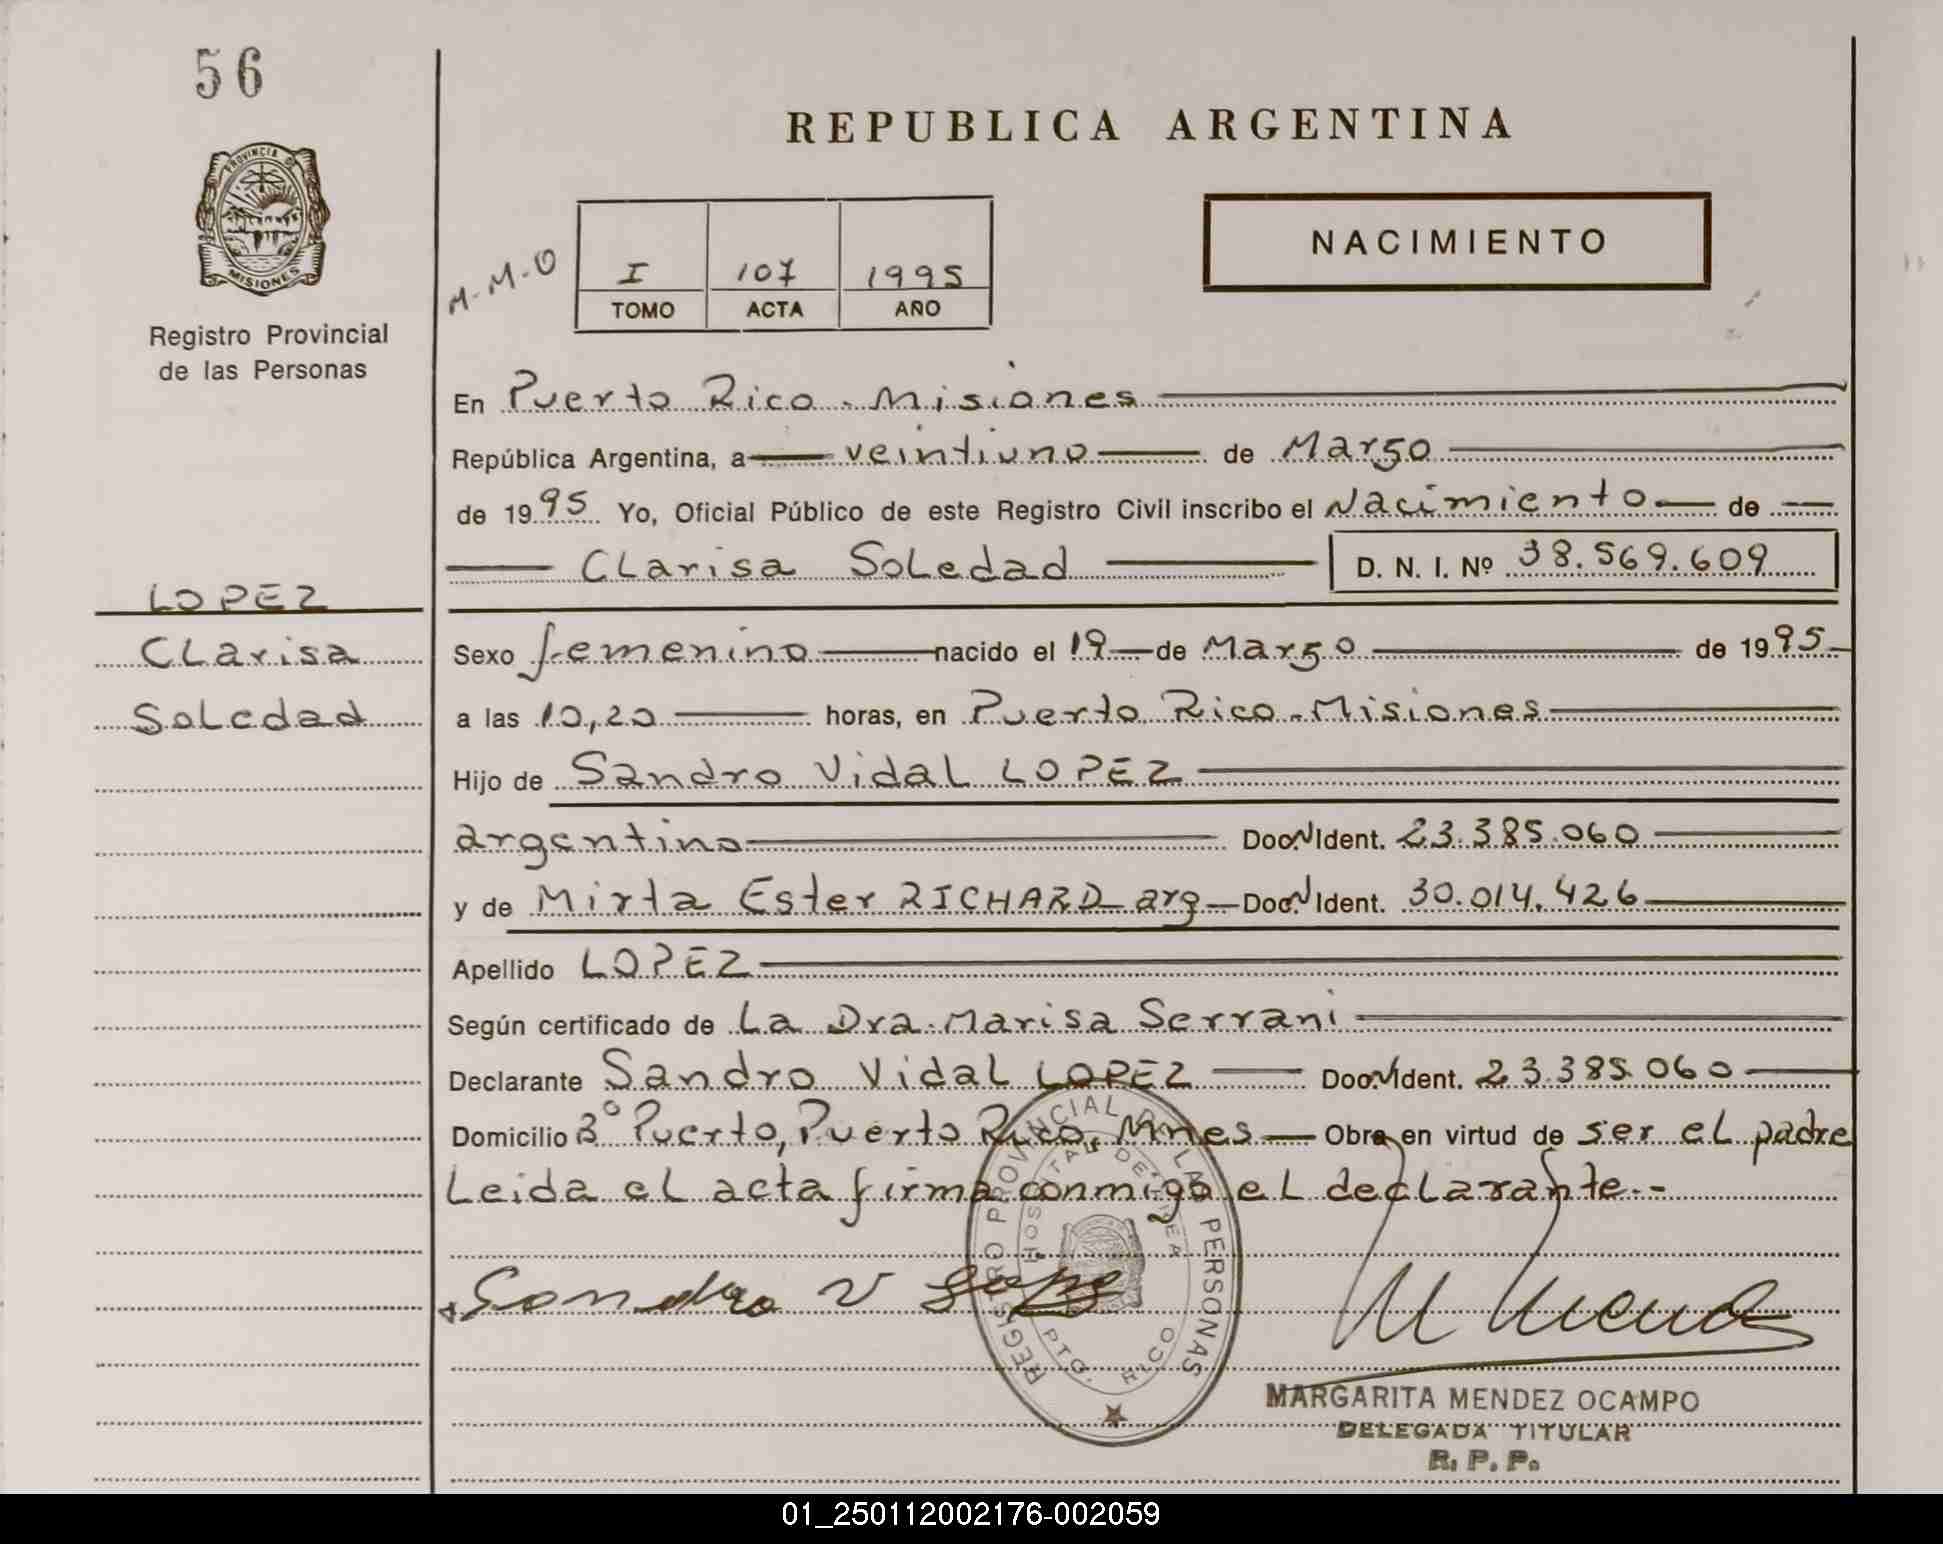 56
PROVINCIA DE
MISIONES
Registro Provincial
de las Personas
REPUBLICA ARGENTINA
M-M-O
I 107 1995
TOMO ACTA AÑO
NACIMIENTO
En Puerto Rico - Misiones
República Argentina, a veintiuno de Marzo
de 1995 Yo, Oficial Público de este Registro Civil inscribo el Nacimiento de
Clarisa Soledad D. N. I. Nº 38.569.609
LOPEZ
Clarisa
Soledad
Sexo femenino nacido el 19 de Marzo de 1995
a las 10,20 horas, en Puerto Rico - Misiones
Hijo de Sandro Vidal LOPEZ
argentino Doc. N Ident. 23.385.060
y de Mirta Ester RICHARD arg Doc. N Ident. 30.014.426
Apellido LOPEZ
Según certificado de La Dra. Marisa Serrani
Declarante Sandro Vidal LOPEZ Doc. N Ident. 23.385.060
Domicilio 3º Puerto, Puerto Rico, Mnes Obra en virtud de ser el padre
Leida el acta firma conmigo el declarante.-
REGISTRO PROVINCIAL DE LAS PERSONAS
HOSPITAL DE AREA
PTO. RICO
Sandro V Lopez
MARGARITA MENDEZ OCAMPO
DELEGADA TITULAR
R. P. P.
01_250112002176-002059